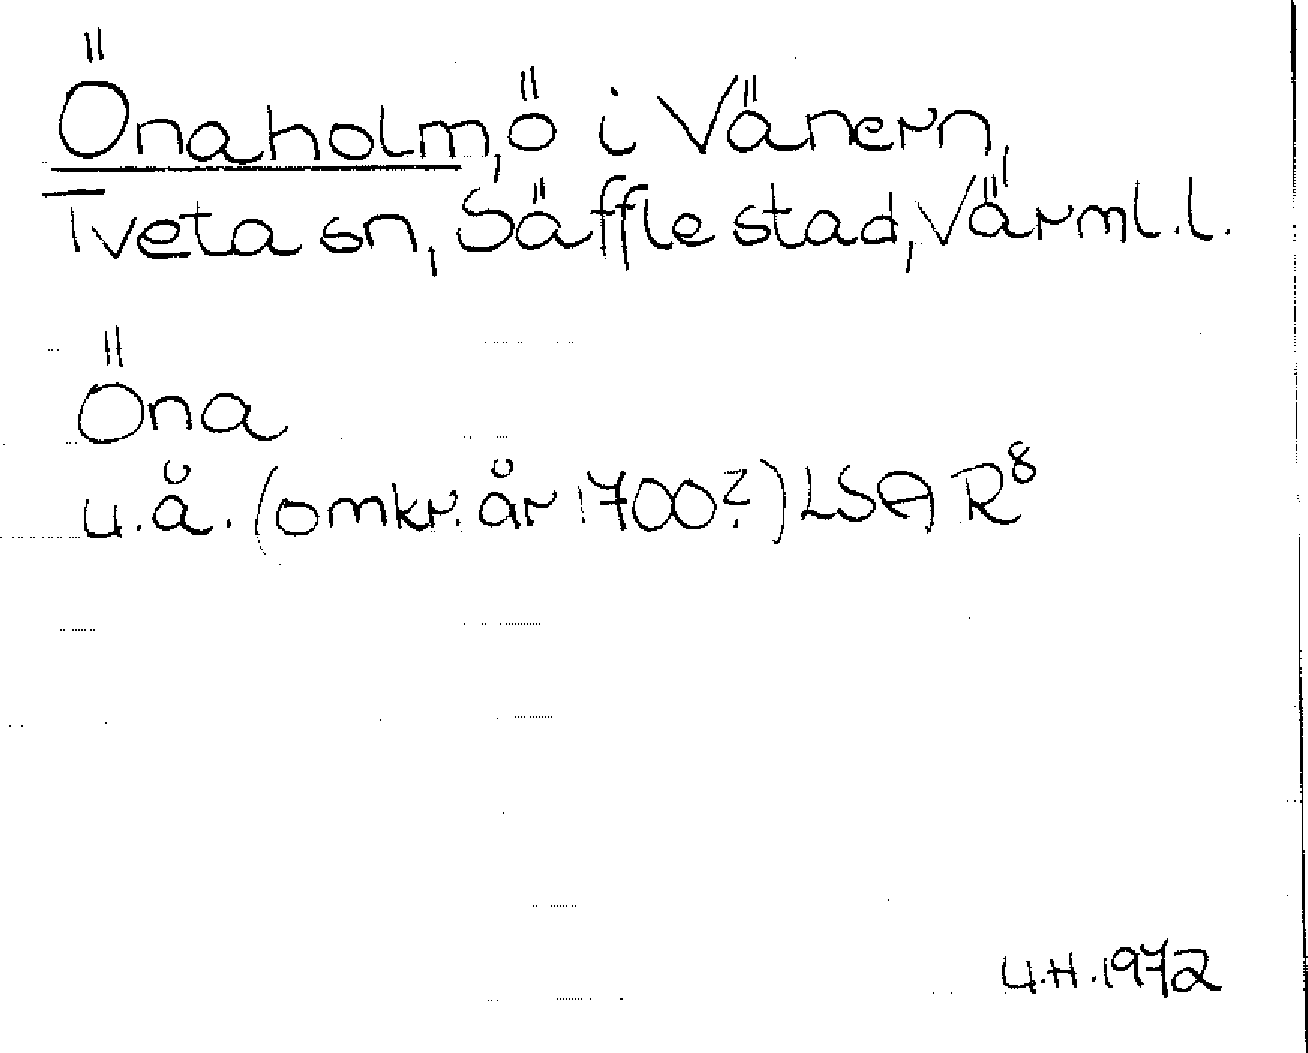 Önaholm, ö i Vänern,
Tveta sn, Säffle stad, Värml. l.
Öna
u. å. (omkr. år 1700?) LSA R⁸
U.H. 1972